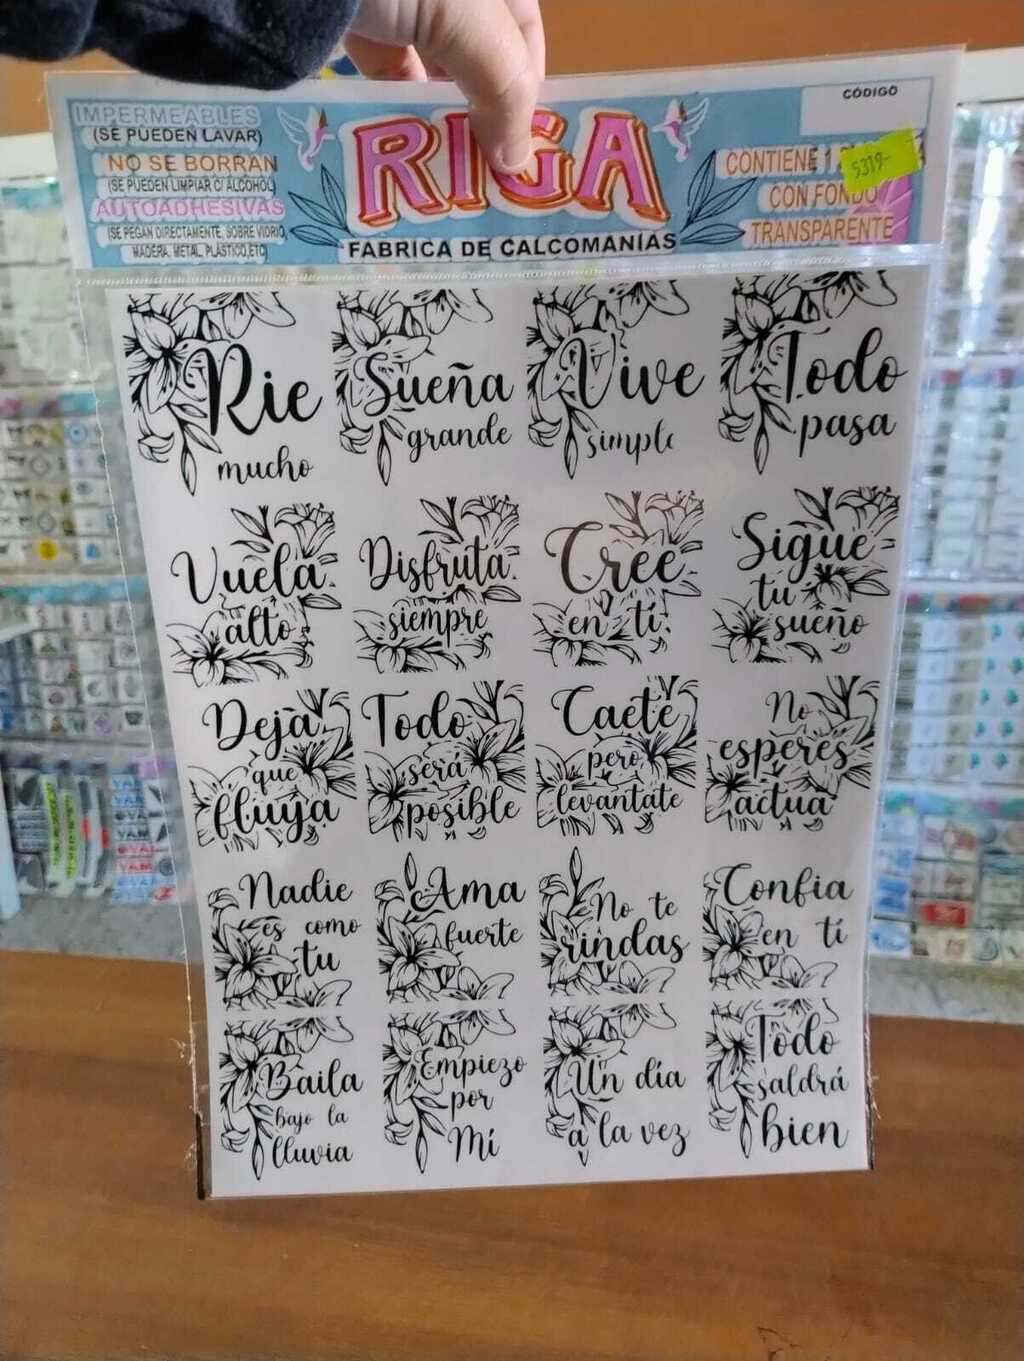 IMPERMEABLES
(SE PUEDEN LAVAR)
NO SE BORRAN
(SE PUEDEN LIMPIAR C/ ALCOHOL)
AUTOADHESIVAS
(SE PEGAN DIRECTAMENTE, SOBRE VIDRIO,
MADERA, METAL, PLÁSTICO, ETC)
RIGA
FABRICA DE CALCOMANÍAS
CÓDIGO
5319-
CONTIENE 1
CON FONDO
TRANSPARENTE
Rie
mucho
Sueña
grande
Vive
simple
Todo
pasa
Vuela
alto
Disfruta
siempre
Cree
en ti
Sigue
tu
sueño
Deja
que
fluya
Todo
será
posible
Caete
pero
levantate
No
esperes
actua
Nadie
es como
tu
Ama
fuerte
No te
rindas
Confia
en ti
Baila
bajo la
lluvia
Empiezo
por
Mí
Un día
a la vez
Todo
saldrá
bien